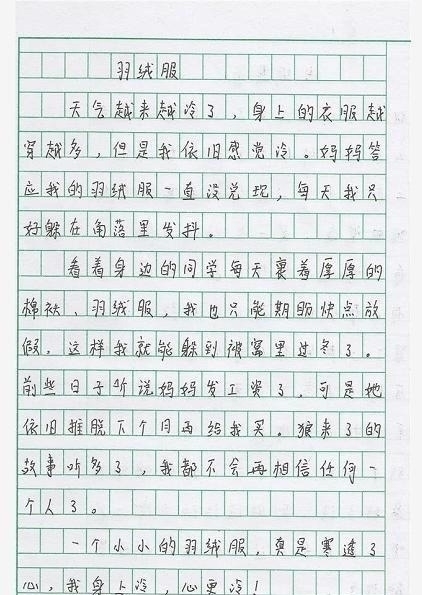 羽绒服
天气越来越冷了，身上的衣服越
穿越多，但是我依旧感觉冷。妈妈答
应我的羽绒服一直没兑现，每天我只
好躲在角落里发抖。
看着身边的同学每天裹着厚厚的
棉袄、羽绒服，我也只能期盼快点放
假，这样我就能躲到被窝里过冬了。
前些日子听说妈妈发工资了，可是她
依旧推脱下个月再给我买。狼来了的
故事听多了，我都不会再相信任何一
个人了。
一个小小的羽绒服，真是寒透了
心，我身上冷，心更冷！